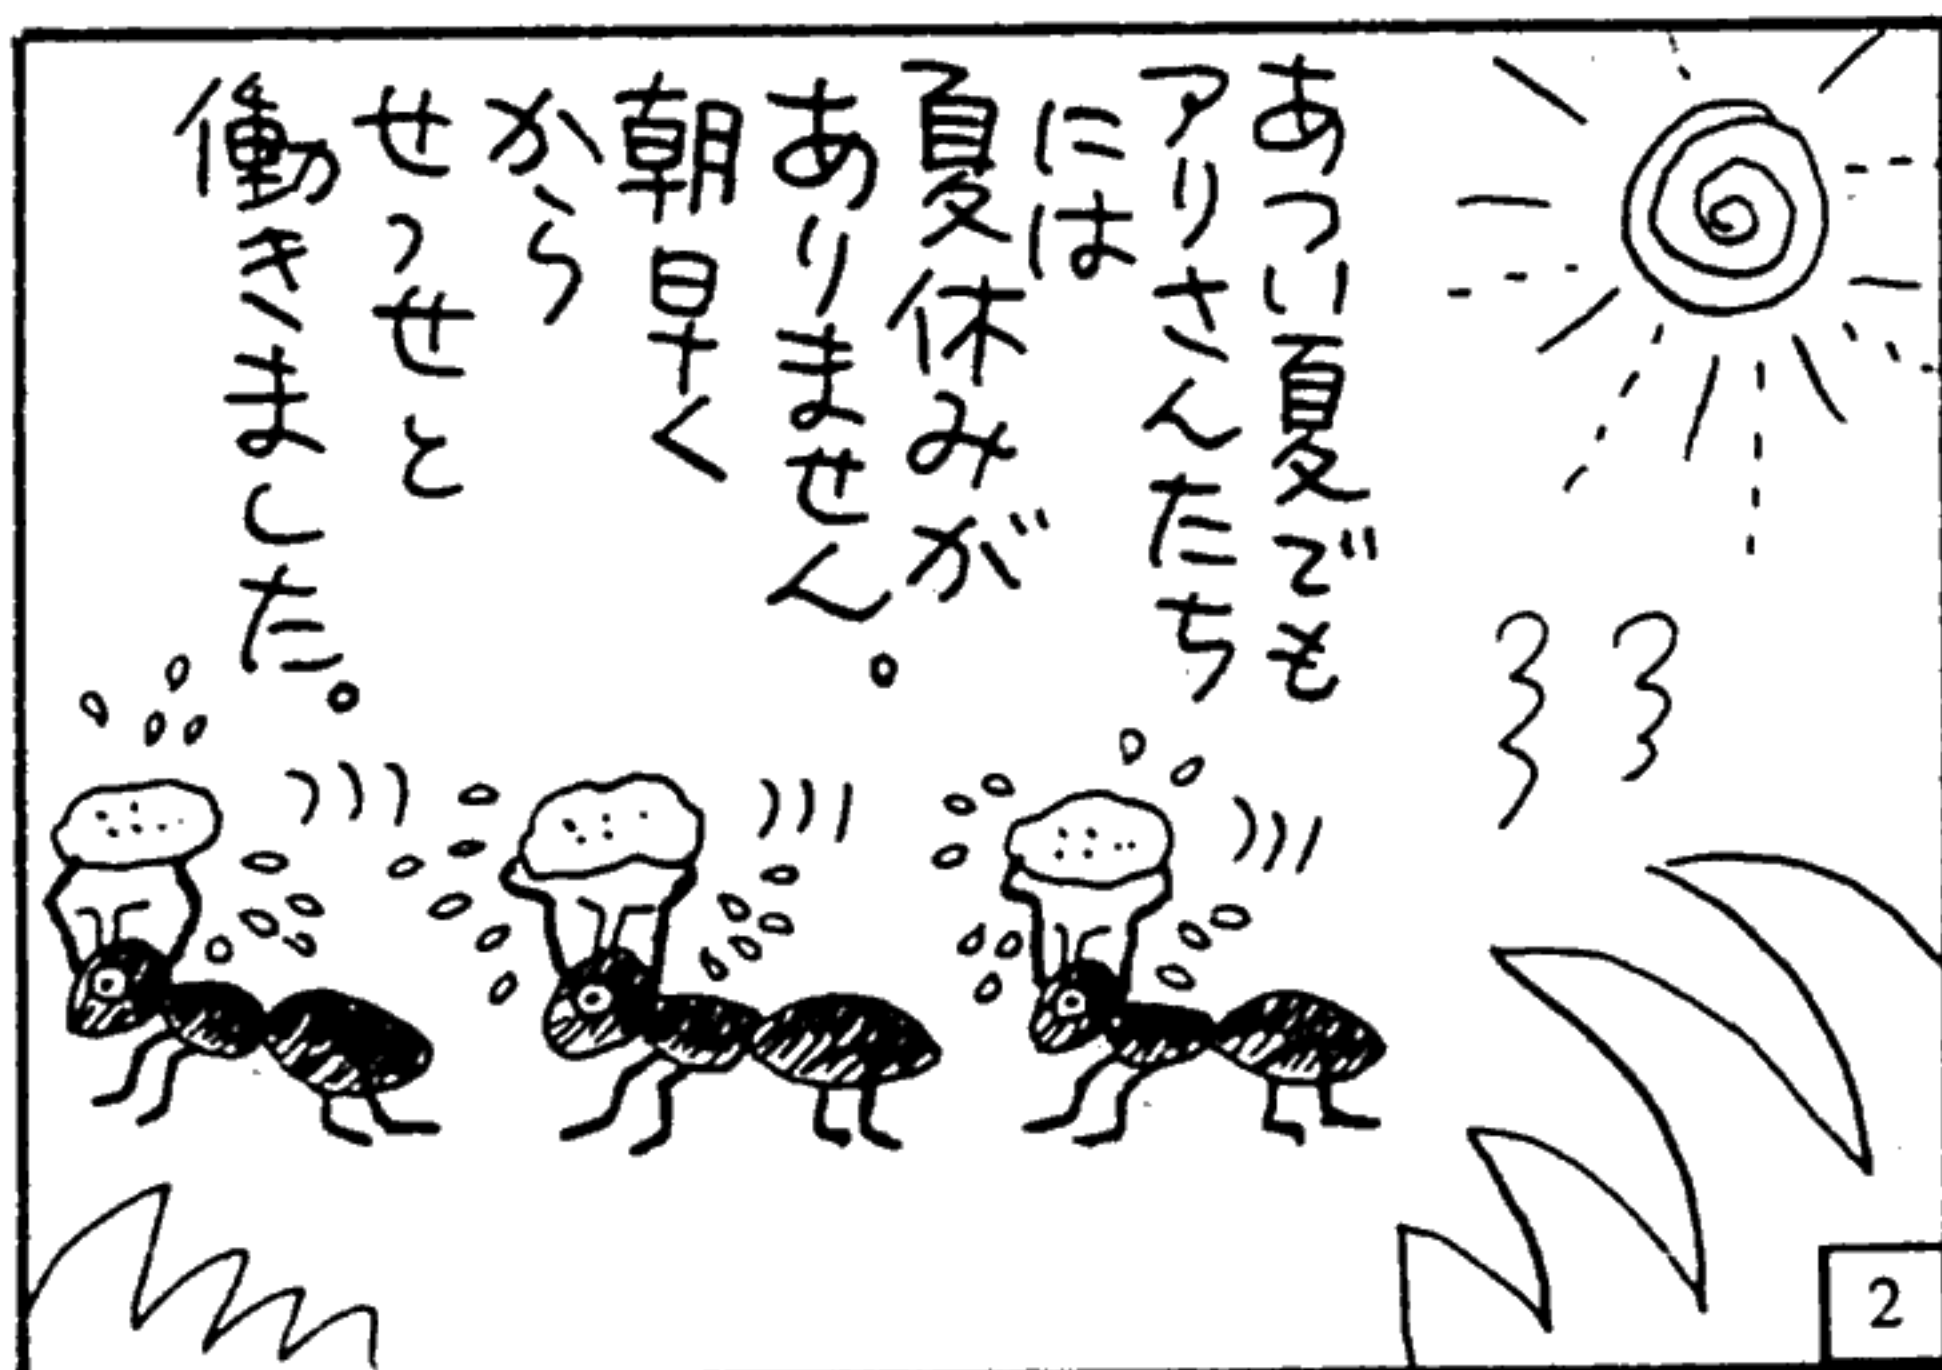 あつい夏でも
アリさんたち
には
夏休みが
ありません。
朝早く
から
せっせと
働きました。
2